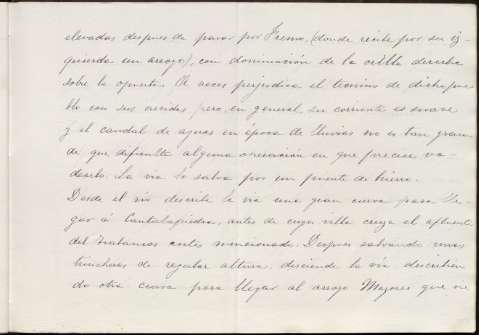 elevadas despues de pasar por Fresno, (donde recibe por su iz-
quierda un arroyo), con dominacion de la orilla derecha
sobre la opuesta. A veces perjudica el termino de dicho pue-
blo con sus crecidas, pero, en general, su corriente es escasa
y el caudal de aguas en época de lluvias no es tan gran-
de que dificulte alguna operación en que precise va-
dearlo. La via lo salva por un puente de hierro.
Desde el rio describe la via una gran curva para lle-
gar á Cantalapiedra, antes de cuya villa cruza el afluente
del Trabancos antes mencionado. Despues salvando unas
trincheras de regular altura, desciende la via describien-
do otra curva para llegar al arroyo Mazores que ne